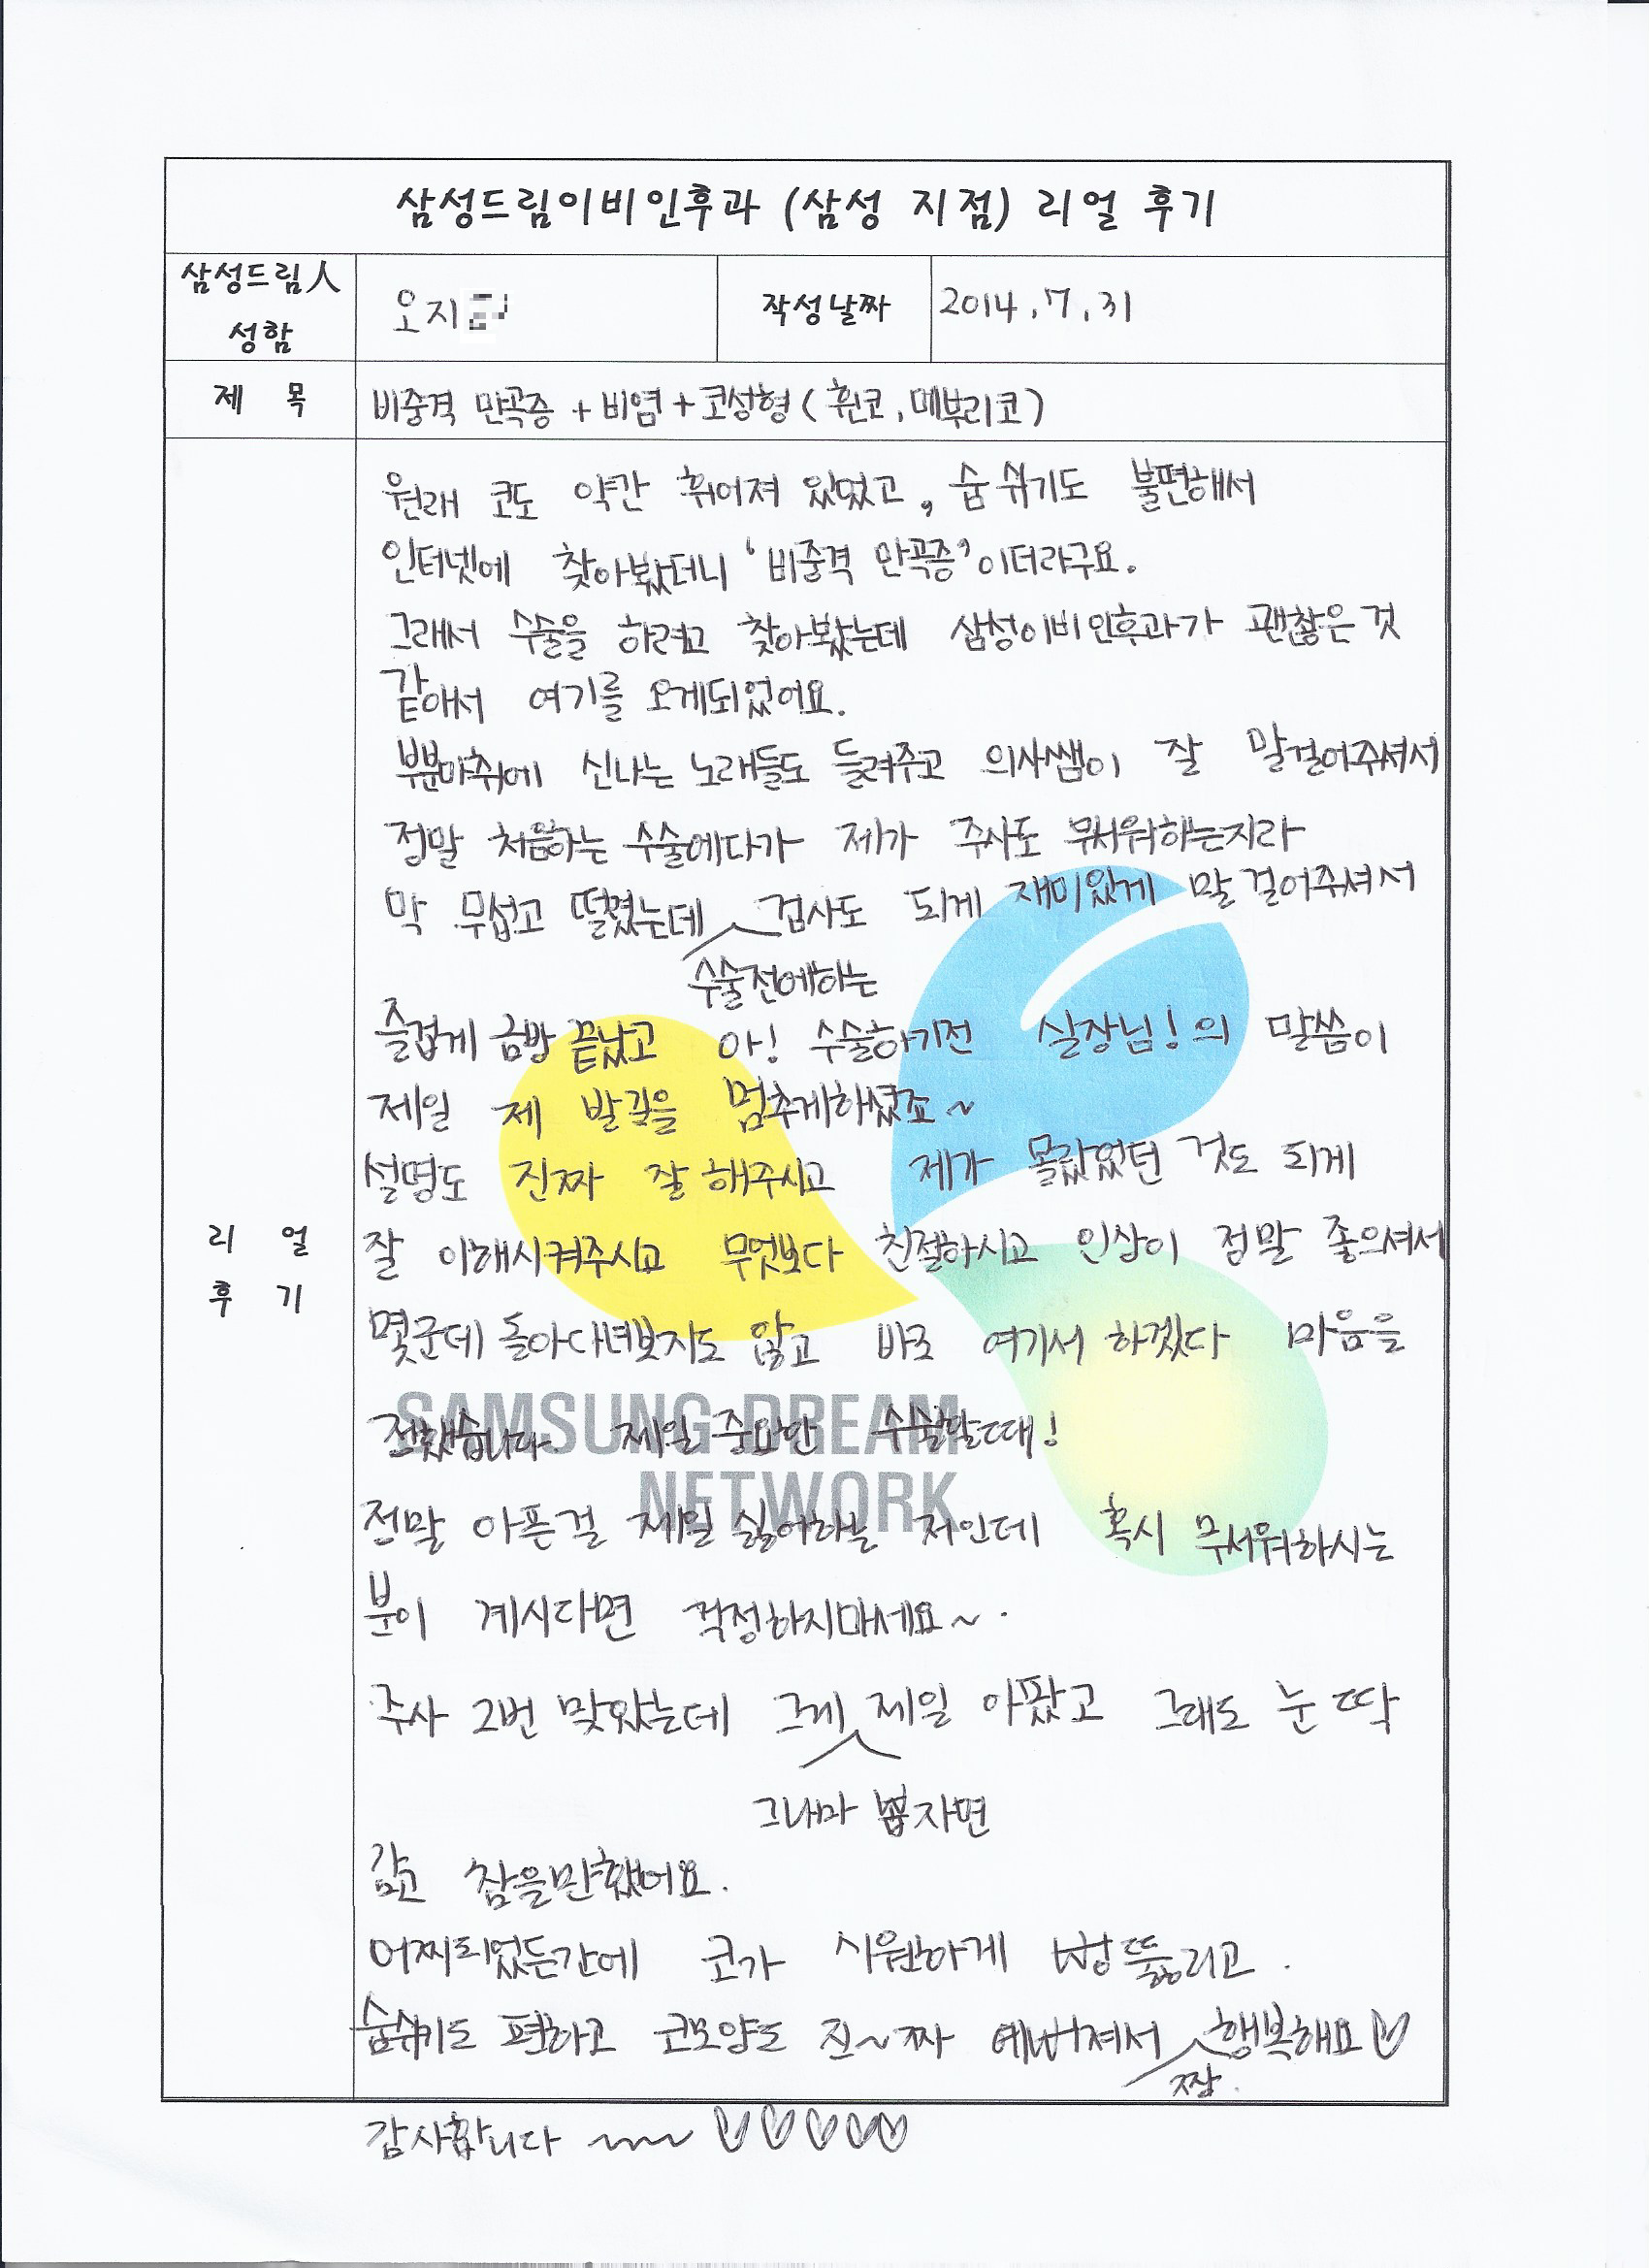 삼성드림이비인후과 (삼성 지점) 리얼 후기
삼성드림人
성함
오지
작성날짜
2014.7.31
제 목
비중격 만곡증 + 비염 + 코성형 (휜코, 매부리코)
리 얼
후 기
원래 코도 약간 휘어져 있었고, 숨쉬기도 불편해서
인터넷에 찾아봤더니 '비중격 만곡증'이더라구요.
그래서 수술을 하려고 찾아봤는데 삼성이비인후과가 괜찮은 것
같아서 여기를 오게되었어요.
신나는 노래들도 들려주고 의사쌤이 잘 말걸어주셔서
정말 처음하는 수술에다가 제가 주사도 무서워하는지라
막 무섭고 떨렸는데 검사도 되게 재미있게 말걸어주셔서
수술전에하는
즐겁게 금방 끝났고 아! 수술하기전 실장님!의 말씀이
제일 제 발길을 멈추게하셨죠~
설명도 진짜 잘 해주시고 제가 몰랐었던 것도 되게
잘 이해시켜주시고 무엇보다 친절하시고 인상이 정말 좋으셔서
몇군데 돌아다녀보지도 않고 바로 여기서 하겠다 마음을
정했습니다 제일 중요한 수술할때!
정말 아픈걸 제일 싫어하는 저인데 혹시 무서워하시는
분이 계시다면 걱정하지마세요~.
주사 2번 맞았는데 그게 제일 아팠고 그래도 눈 딱
그나마 뽑자면
감고 참을만했어요.
어찌되었든간에 코가 시원하게 뻥 뚫리고.
숨쉬기도 편하고 코모양도 진~짜 예뻐져서 행복해요♡
짱.
감사합니다 ~~~ ♡♡♡♡♡
SAMSUNG DREAM
NETWORK